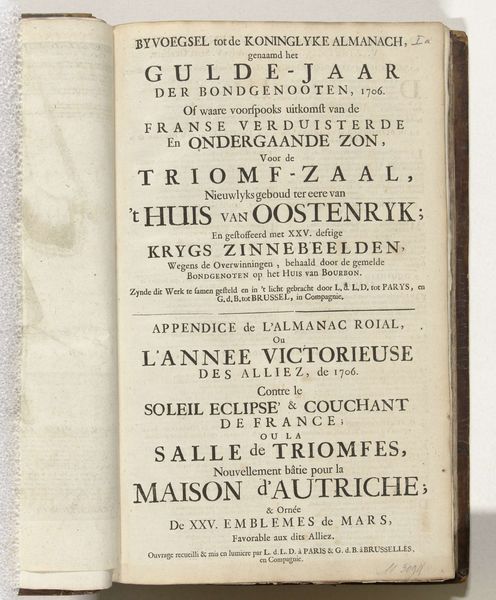 BYVOEGSEL tot de KONINGLYKE ALMANACH,
genaamd het
GULDE-JAAR
DER BONDGENOOTEN, 1706.
Of waare voorspooks uitkomst van de
FRANSE VERDUISTERDE
En ONDERGAANDE ZON,
Voor de
TRIOMF-ZAAL,
Nieuwlyks geboud ter eere van
't HUIS VAN OOSTENRYK;
En gestoffeerd met XXV. deftige
KRYGS ZINNEBEELDEN,
Wegens de Overwinningen, behaald door de gemelde
BONDGENOTEN op het HUIS van BOURBON.
Zynde dit Werk te samen gesteld en in 't licht gebracht door L. d. L. D. tot PARYS, en
G. d. B. tot BRUSSEL, in Compagnie.
APPENDICE de L'ALMANAC ROIAL,
Ou
L'ANNEE VICTORIEUSE
DES ALLIEZ, de 1706.
Contre le
SOLEIL ECLIPSE' & COUCHANT
DE FRANCE;
OU LA
SALLE de TRIOMFES,
Nouvellement bâtie pour la
MAISON d'AUTRICHE;
& Ornée
De XXV. EMBLEMES de MARS,
Favorable aux dits Alliez.
Ouvrage recueilli & mis en lumiere par L. d. L. D. à PARIS & G. d. B. à BRUSSELLES,
en Compagnie.